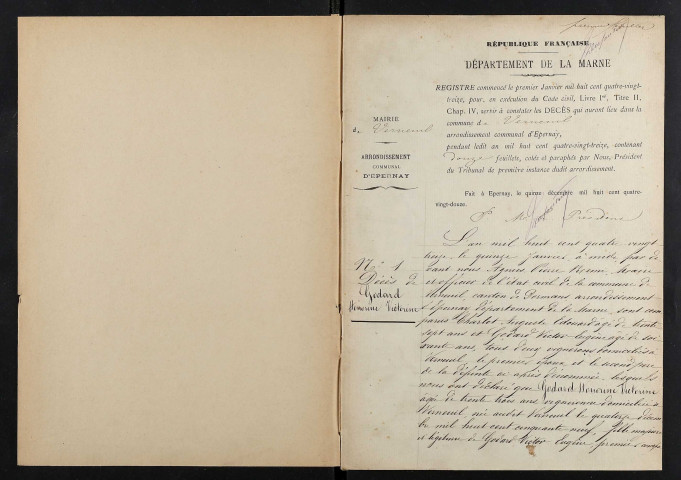 RÉPUBLIQUE FRANÇAISE
DÉPARTEMENT DE LA MARNE
REGISTRE commencé le premier Janvier mil huit cent quatre-vingt-
treize, pour, en exécution du Code civil, Livre Ier, Titre II,
Chap. IV, servir à constater les DÉCÈS qui auront lieu dans la
commune d e Verneuil
arrondissement communal d'Epernay,
pendant ledit an mil huit cent quatre-vingt-treize, contenant
douze feuillets, cotés et paraphés par Nous, Président
du Tribunal de première instance dudit arrondissement.
Fait à Epernay, le quinze décembre mil huit cent quatre-
vingt-douze.
Président
MAIRIE
de Verneuil
ARRONDISSEMENT
COMMUNAL
D'EPERNAY
No 1
Décès de
Godard
Honorine Victorine
L'an mil huit cent quatre vingt
treize le quinze janvier, à midi par de
vant nous Pierre Maire
et officier de l'état civil de la commune de
Verneuil, canton de Dormans arrondissement
d'Epernay département de la Marne, sont com
parus Charlot Auguste Edouard âgé de trente
sept ans et Godard Victor Eugène âgé de soi
xante ans, tous deux vignerons domiciliés à
Verneuil, le premier époux et le second père
de la défunte ci après dénommée, lesquels
nous ont déclaré que Godard Honorine Victorine
âgée de trente trois ans vigneronne domiciliée à
Verneuil, née audit Verneuil le quatorze décem
bre mil huit cent cinquante neuf, fille majeure
et légitime de Godard Victor Eugène premier